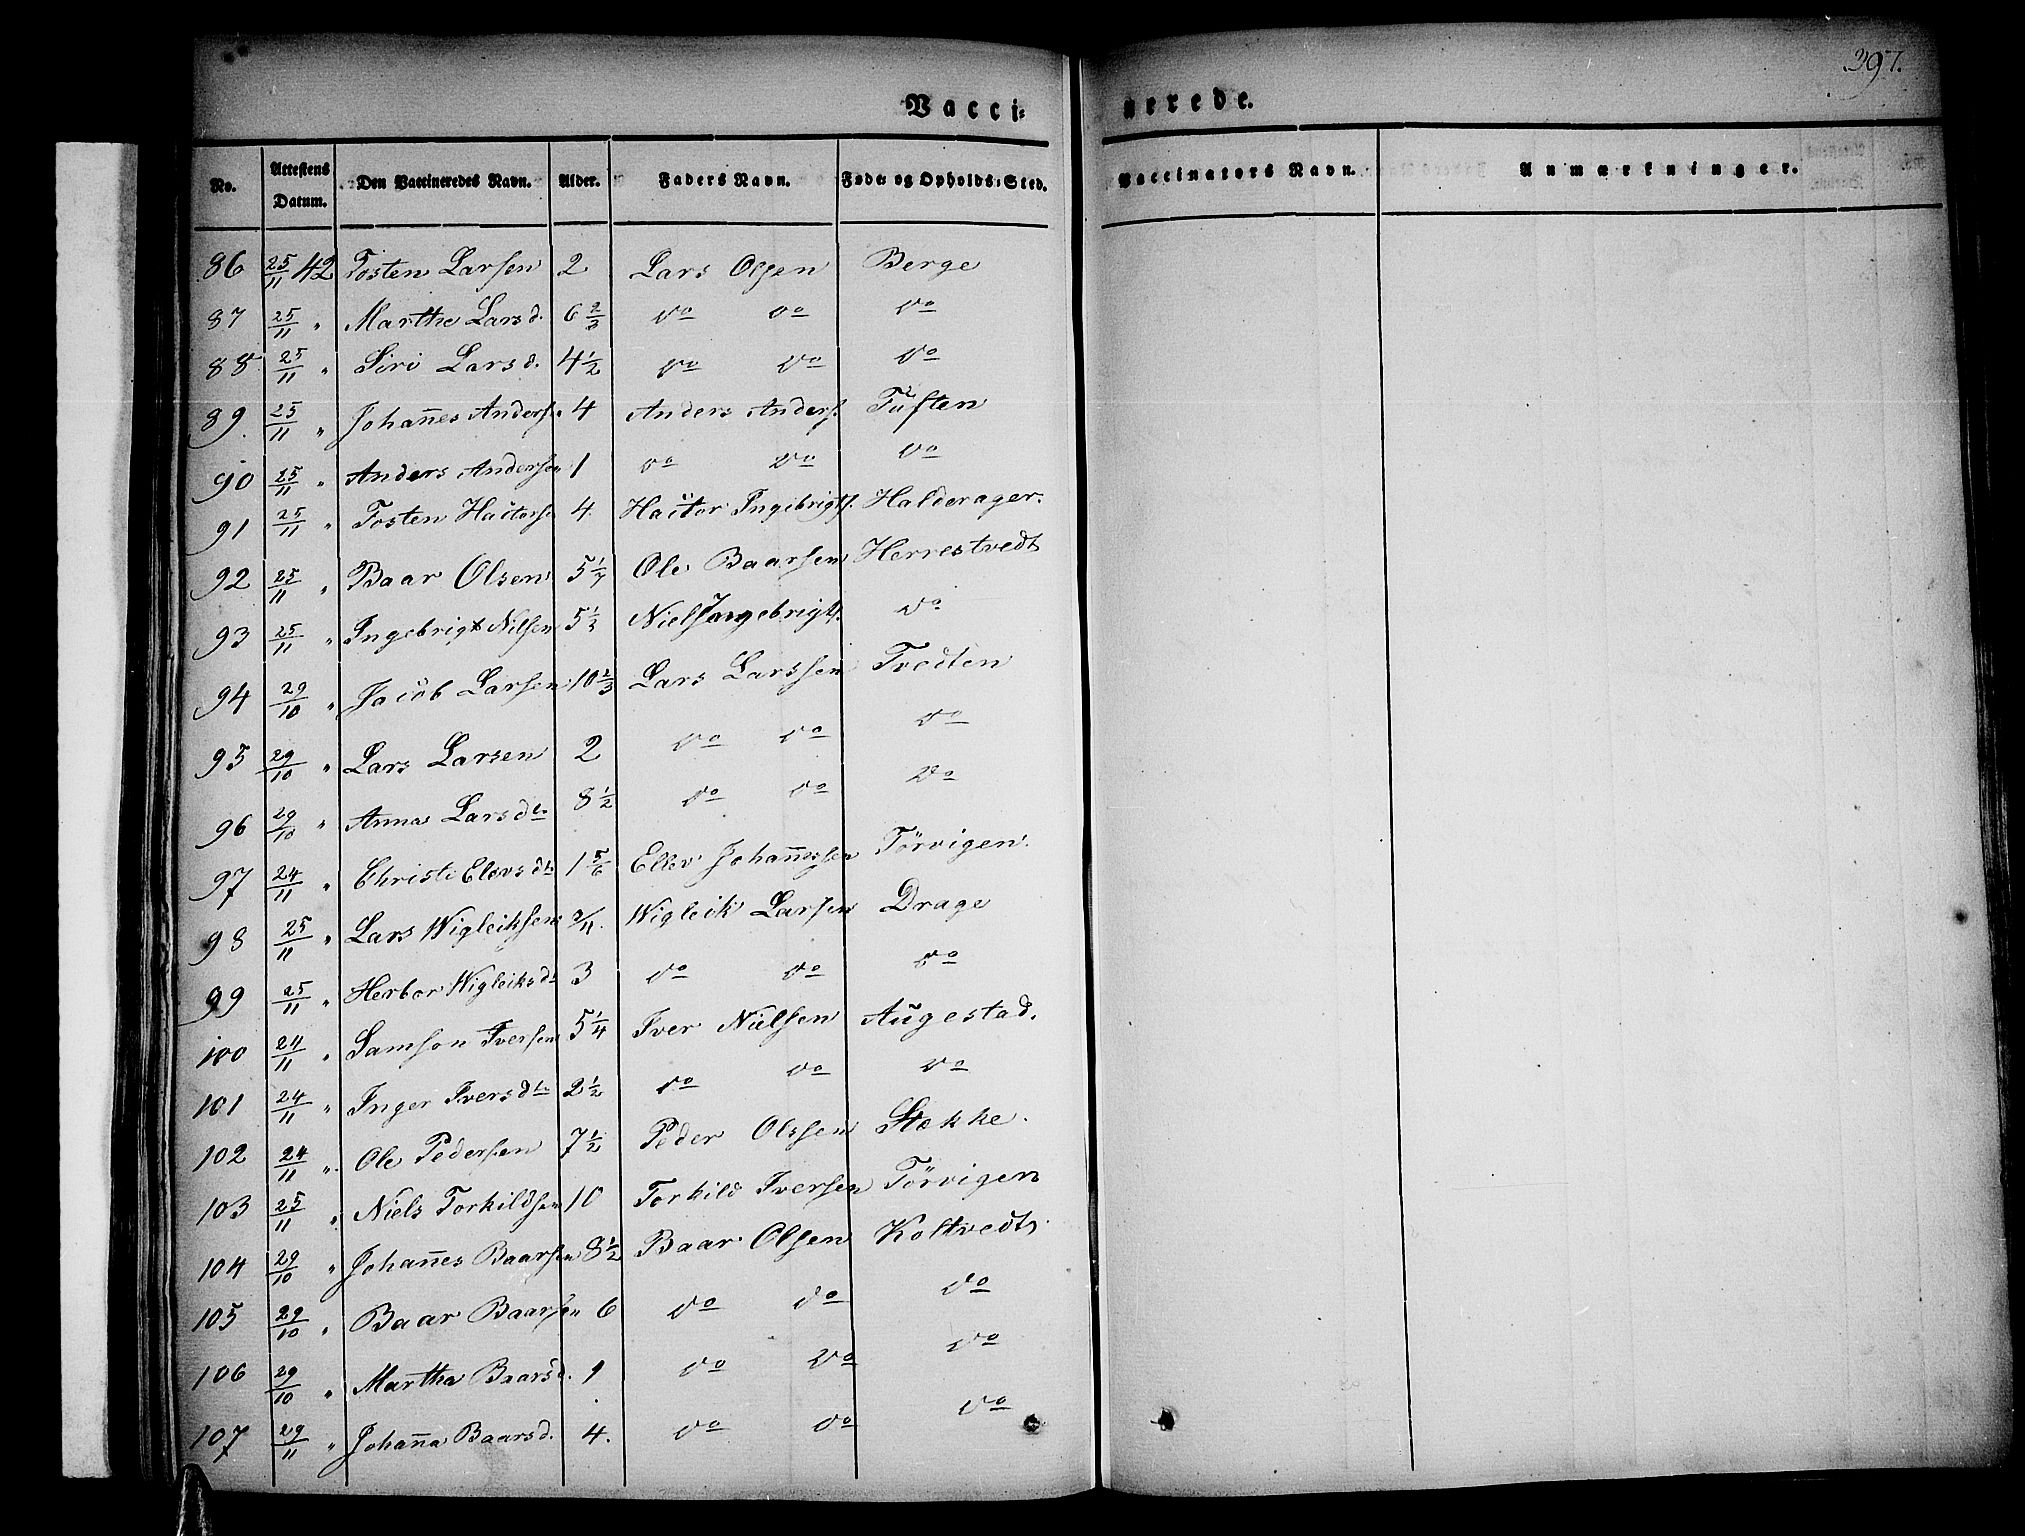 397.
Vacci=
nerede.
No. Attestens Datum. Den Vaccineredes Navn. Alder. Faders Navn. Føde= og Opholds=Sted. Vaccinators Navn. Anmærkninger.
86 25/11 42 Tosten Larsen 2 Lars Olsen Berge
87 25/11 " Marthe Larsd. 6 2/3 do do do
88 25/11 " Siri Larsd. 4 1/2 do do do
89. 25/11 " Johan̄es Anders. 4 Anders Anders. Tŭften
90 25/11 " Anders Andersen 1 do do do
91 25/11 " Tosten 4. Ingebrigts. Halderager.
92 25/11 " Baar Olsen 5 1/7 Ole Baarsen Herrestvedt
93 25/11 " Ingebrigt Nilsen 5 1/3 Niels Ingebrigts. do
94 29/10 " Jacob Larsen 10 2/3 Lars Larssen Tvedten
95 29/10 " Lars Larsen 2 do do do
96 29/10 " Anna Larsdtr 8 1/2 do do do
97 24/11 " Christi Elevsdtr 1 5/6 Ellev Johan̄essen Törvigen.
98 25/11 " Lars Wigleiksen 3/4. Wigleik Larsen Drage
99 25/11 " Herbor Wigleiksdtr 3 do do do
100 24/11 " Samson Iversen 5 1/4 Iver Nielsen Aŭgestad.
101 24/11 " Inger Iversdtr 2 1/2 do do do
102 24/11 " Ole Pedersen 7 1/2 Peder Olssen Stekke.
103 25/11 " Niels Torkildsen 10 Torkild Iversen Törvigen
104 29/10 " Johan̄es Baarsen 8 1/2 Baar Olsen Koltvedt
105 29/10 " Baar Baarsen 6 do do do
106 29/10 " Martha Baarsd. 1 do do do
107 29/11 " Johan̄a Baarsd. 4. do do do